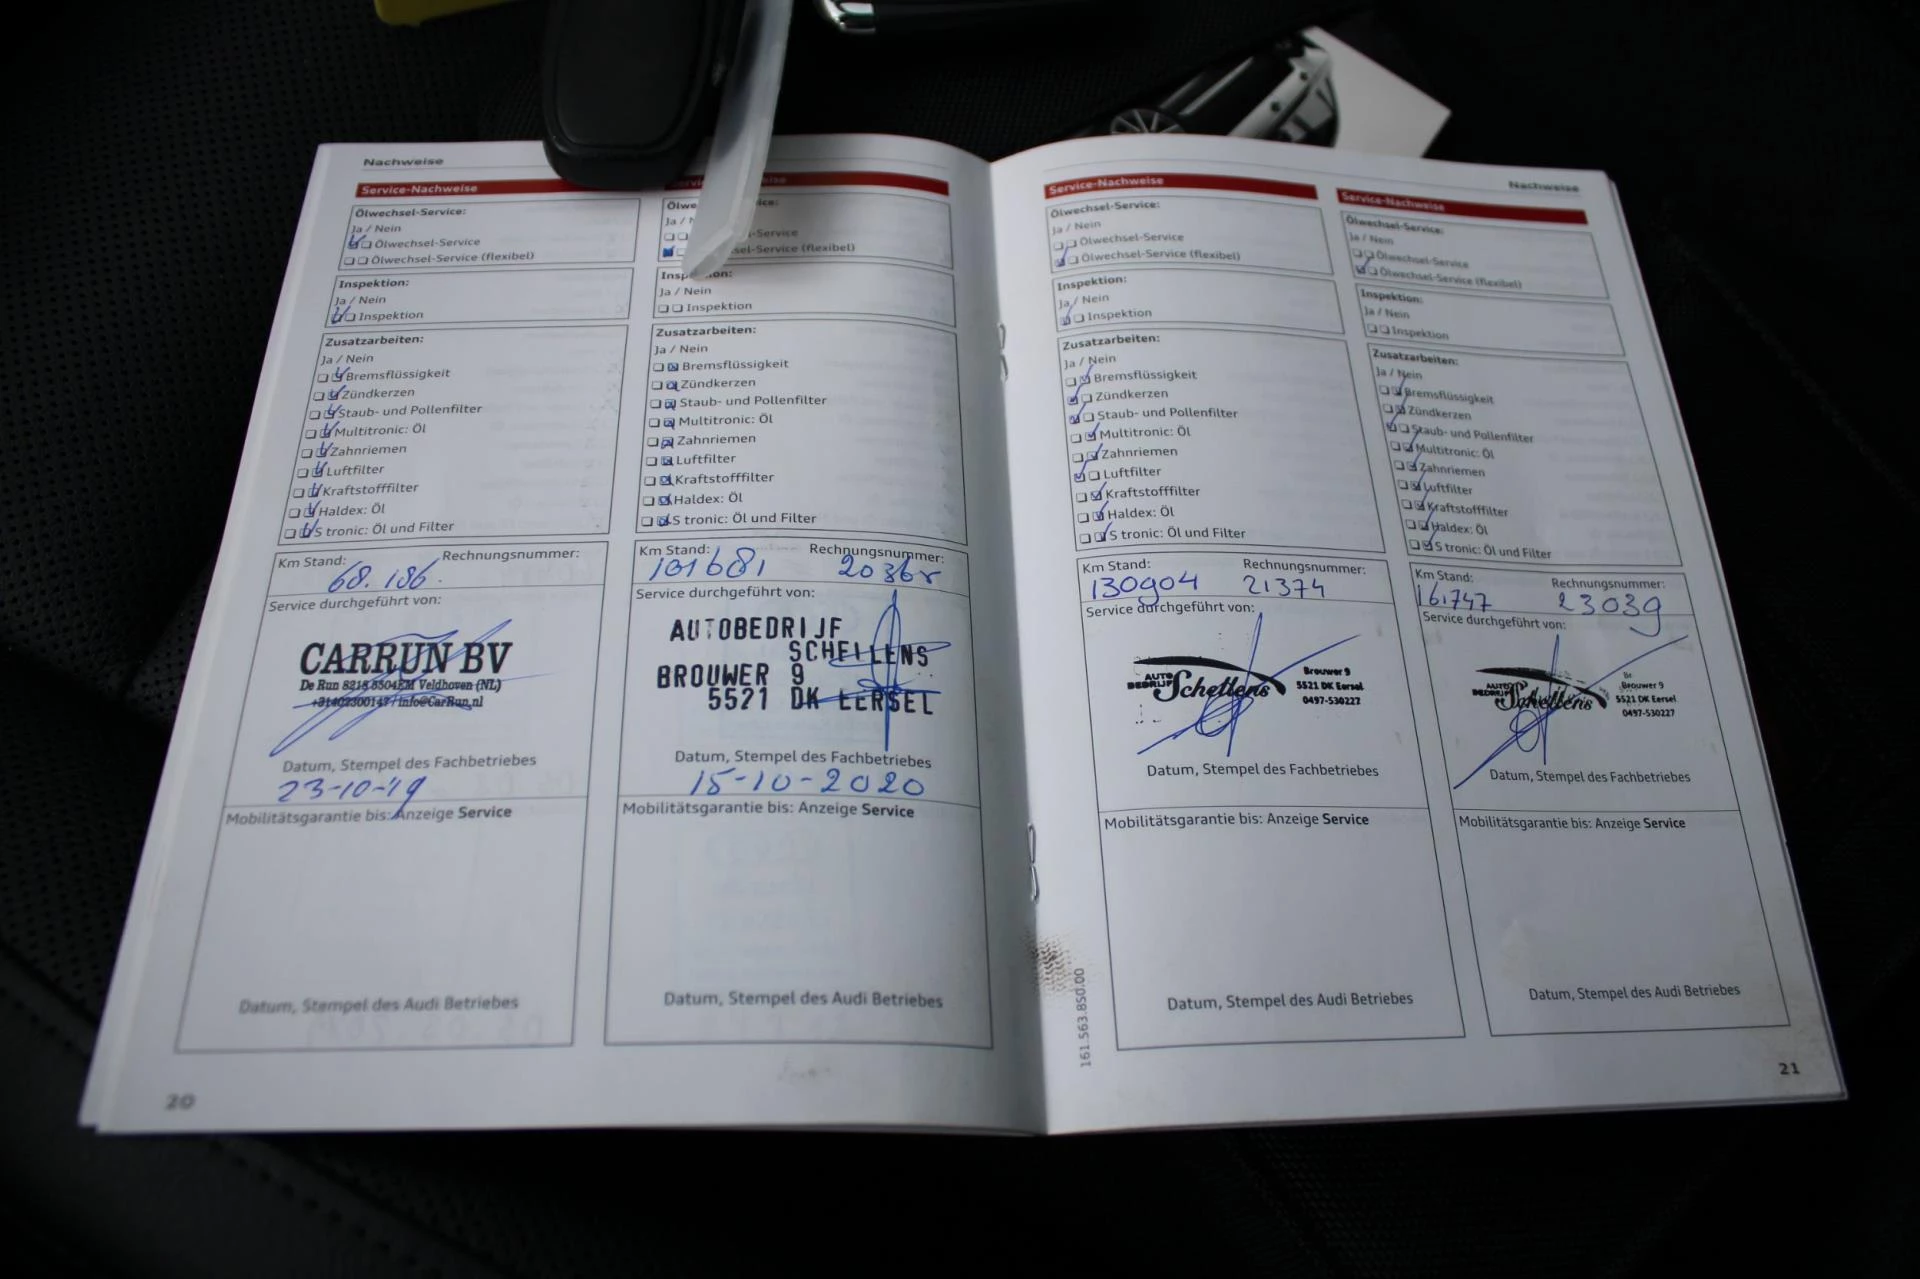 Nachweise
Service-Nachweise
Ölwechsel-Service:
Ja / Nein
Ölwechsel-Service
Ölwechsel-Service (flexibel)
Inspektion:
Ja / Nein
Inspektion
Zusatzarbeiten:
Ja / Nein
Bremsflüssigkeit
Zündkerzen
Staub- und Pollenfilter
Multitronic: Öl
Zahnriemen
Luftfilter
Kraftstofffilter
Haldex: Öl
S tronic: Öl und Filter
Km Stand: Rechnungsnummer:
68.186.
Service durchgeführt von:
CARRUN BV
De Run Veldhoven (NL)
info@CarRun.nl
Datum, Stempel des Fachbetriebes
23-10-19
Mobilitätsgarantie bis: Anzeige Service
Datum, Stempel des Audi Betriebes
20
Ja /
(flexibel)
Ja / Nein
Inspektion
Zusatzarbeiten:
Ja / Nein
Bremsflüssigkeit
Zündkerzen
Staub- und Pollenfilter
Multitronic: Öl
Zahnriemen
Luftfilter
Kraftstofffilter
Haldex: Öl
S tronic: Öl und Filter
Km Stand: Rechnungsnummer:
101681
Service durchgeführt von:
AUTOBEDRIJF
SCHELLENS
BROUWER 9
5521 DK EERSEL
Datum, Stempel des Fachbetriebes
15-10-2020
Mobilitätsgarantie bis: Anzeige Service
Datum, Stempel des Audi Betriebes
Service-Nachweise
Ölwechsel-Service:
Ja / Nein
Ölwechsel-Service
Ölwechsel-Service (flexibel)
Inspektion:
Ja / Nein
Inspektion
Zusatzarbeiten:
Ja / Nein
Bremsflüssigkeit
Zündkerzen
Staub- und Pollenfilter
Multitronic: Öl
Zahnriemen
Luftfilter
Kraftstofffilter
Haldex: Öl
S tronic: Öl und Filter
Km Stand: Rechnungsnummer:
130904 21374
Service durchgeführt von:
AUTO
BEDRIJF Schellens
Brouwer 9
5521 DK Eersel
0497-530227
Datum, Stempel des Fachbetriebes
Mobilitätsgarantie bis: Anzeige Service
Datum, Stempel des Audi Betriebes
161.563.850.00
Nachweise
Service-Nachweise
Ölwechsel-Service:
Ja / Nein
Ölwechsel-Service
Ölwechsel-Service (flexibel)
Inspektion:
Ja / Nein
Inspektion
Zusatzarbeiten:
Ja / Nein
Bremsflüssigkeit
Zündkerzen
Staub- und Pollenfilter
Multitronic: Öl
Zahnriemen
Luftfilter
Kraftstofffilter
Haldex: Öl
S tronic: Öl und Filter
Km Stand: Rechnungsnummer:
161747 23039
Service durchgeführt von:
AUTO
BEDRIJF Schellens
Brouwer 9
5521 DK Eersel
0497-530227
Datum, Stempel des Fachbetriebes
Mobilitätsgarantie bis: Anzeige Service
Datum, Stempel des Audi Betriebes
21